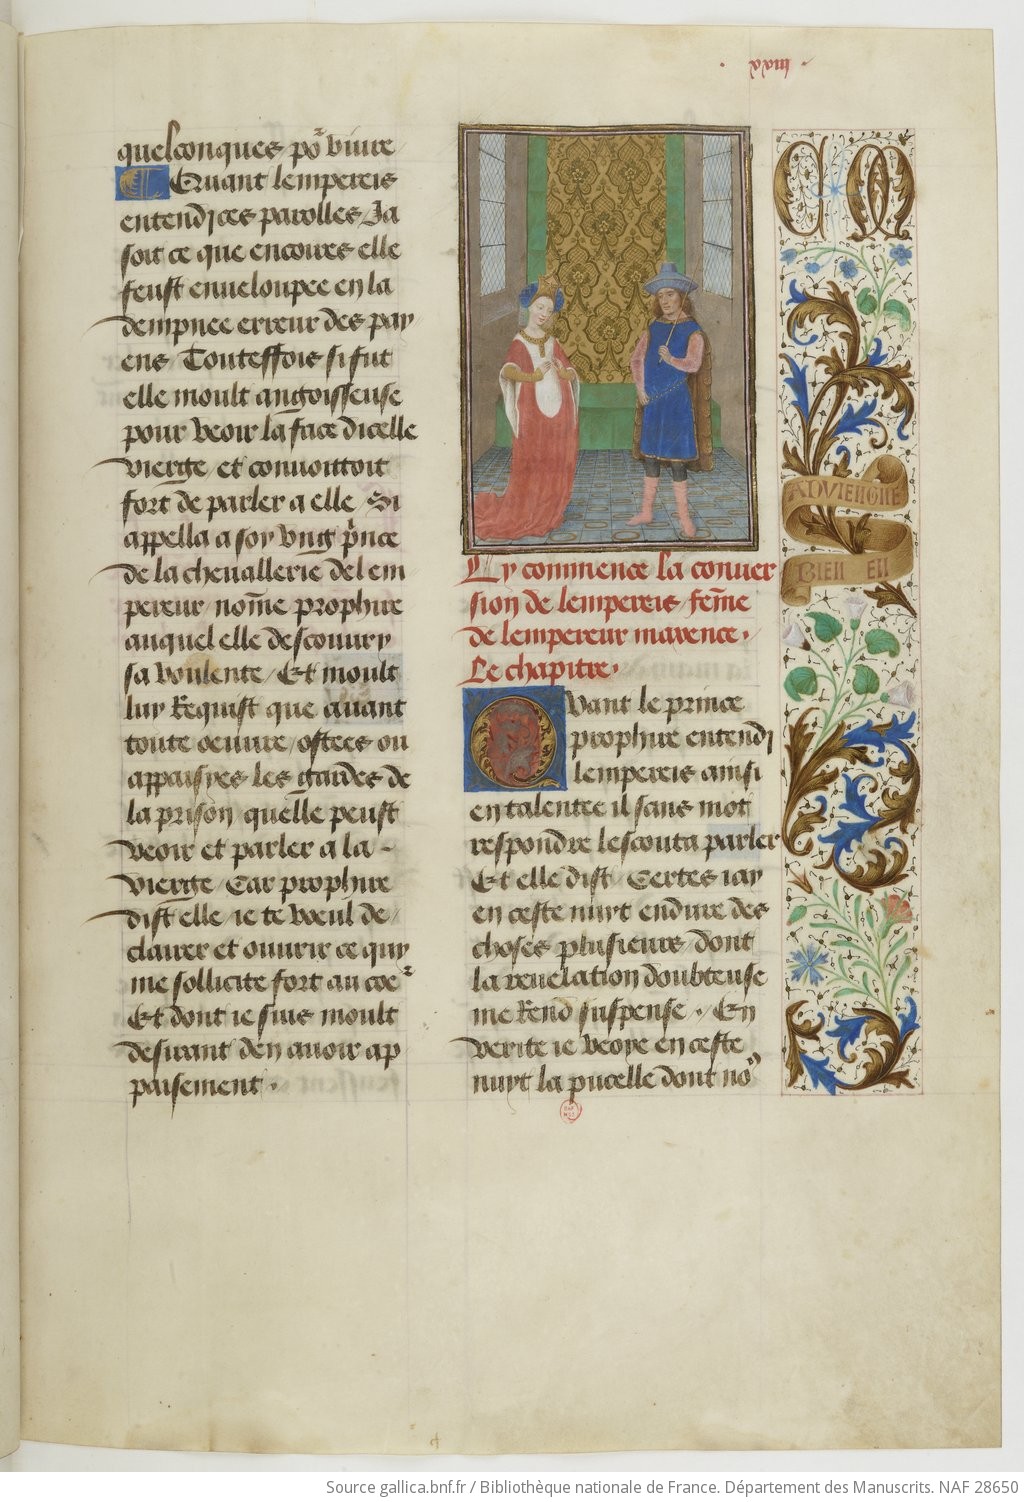 .xxviii.
quelconques por viure
Quant lempereis
entendi ces parolles Ja
soit ce que encores elle
feust enueloupee en la
dempnee erreur des pay
ens Touteffois si fut
elle moult angoisseuse
pour veoir la face dicelle
vierge et conuoittoit
fort de parler a elle Si
appella a soy vng p'nce
de la cheuallerie del em
pereur no͞me prophire
auquel elle descouury
sa voulente / Et moult
luy Requist que auant
toute oeuure / ostees ou
appaisyes les gardes de
la prison quelle peust
veoir et parler a la -
vierge / Car prophire
dist elle / ie te voeul de /
clairer et ouurir ce quy
me sollicite fort au coer
Et dont ie suis moult
desirant den auoir ap
paisement .
Cy commence la conuer
sion de lempereis / fem̄e
de lempereur maxence ./
Le chapitre .
Quant le prince
prophire entendi
lempereis ainsi
entalentee il sans mot
respondre lescouta parler
Et elle dist / Certes iay
en ceste nuyt endure des
choses plusieurs / dont
la reuelation doubteuse
me Rend suspense ./ En
verite ie veoye en ceste
nuyt la pucelle dont no9
ADVIENGNE
BIEN EN
Source gallica.bnf.fr / Bibliothèque nationale de France. Département des Manuscrits. NAF 28650